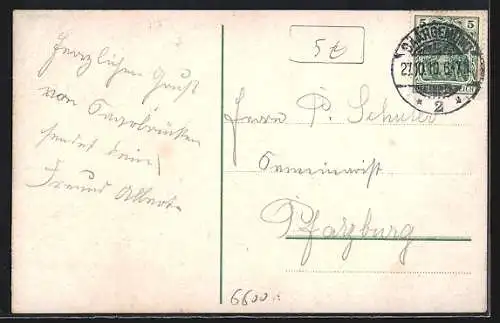 Herzlichen Gruß
von Saarbrücken
sendet dein
Freund Albert
5 £
SAARGEMÜND
27.10.10. 6-7
* 2
5
5
Herrn P. Schuler
Seminarist
Pfalzburg
6600